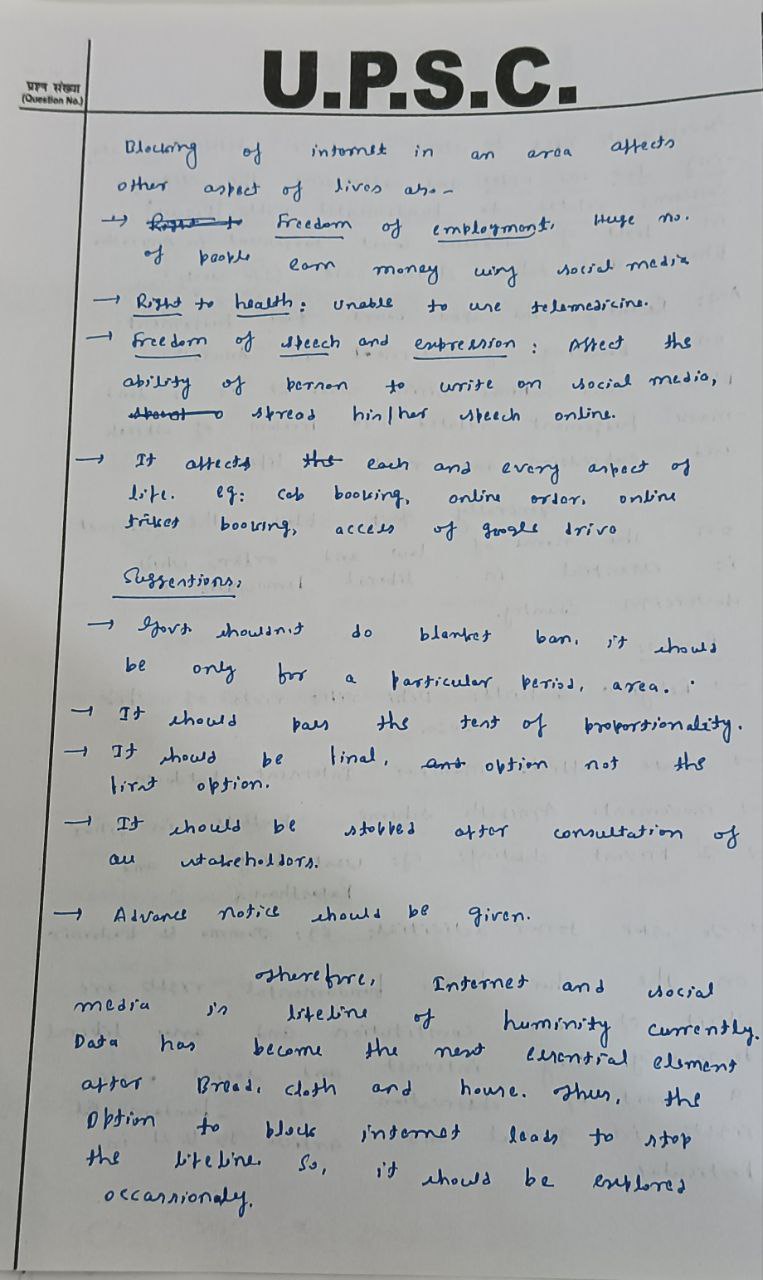 U.P.S.C.
प्रश्न संख्या
(Question No.)
Blocking of internet in an area affects
other aspect of lives also -
→ Right to Freedom of employment, Huge no.
of people earn money using social media
→ Right to health: Unable to use telemedicine.
→ Freedom of speech and expression: Affect the
ability of person to write on social media,
spread his/her speech online.
→ It affects the each and every aspect of
life. eg: cab booking, online order, online
ticket booking, access of google drive
Suggestions,
→ Govt shouldn't do blanket ban, it should
be only for a particular period, area.
→ It should pass the test of proportionality.
→ It should be final, and option not the
first option.
→ It should be stopped after consultation of
all stakeholders.
→ Advance notice should be given.
Therefore, Internet and social
media is lifeline of huminity currently.
Data has become the next essential element
after Bread, cloth and house. Thus, the
Option to block internet leads to stop
the lifeline. So, it should be explored
occassionaly.